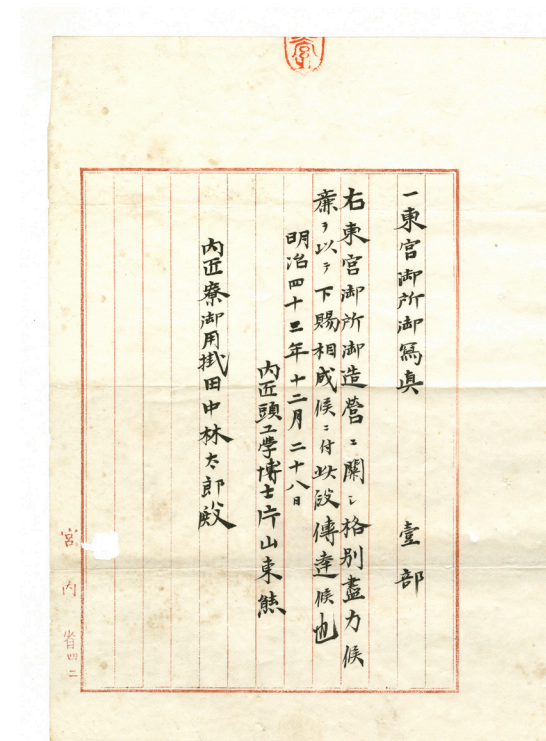 一東宮御所御寫眞 壹部
右東宮御所御造營ニ關シ格別盡力候
廉ヲ以テ下賜相成候ニ付此段傳達候也
明治四十二年十二月二十八日
内匠頭工學博士片山東熊
内匠寮御用掛田中林太郎殿
宮内省